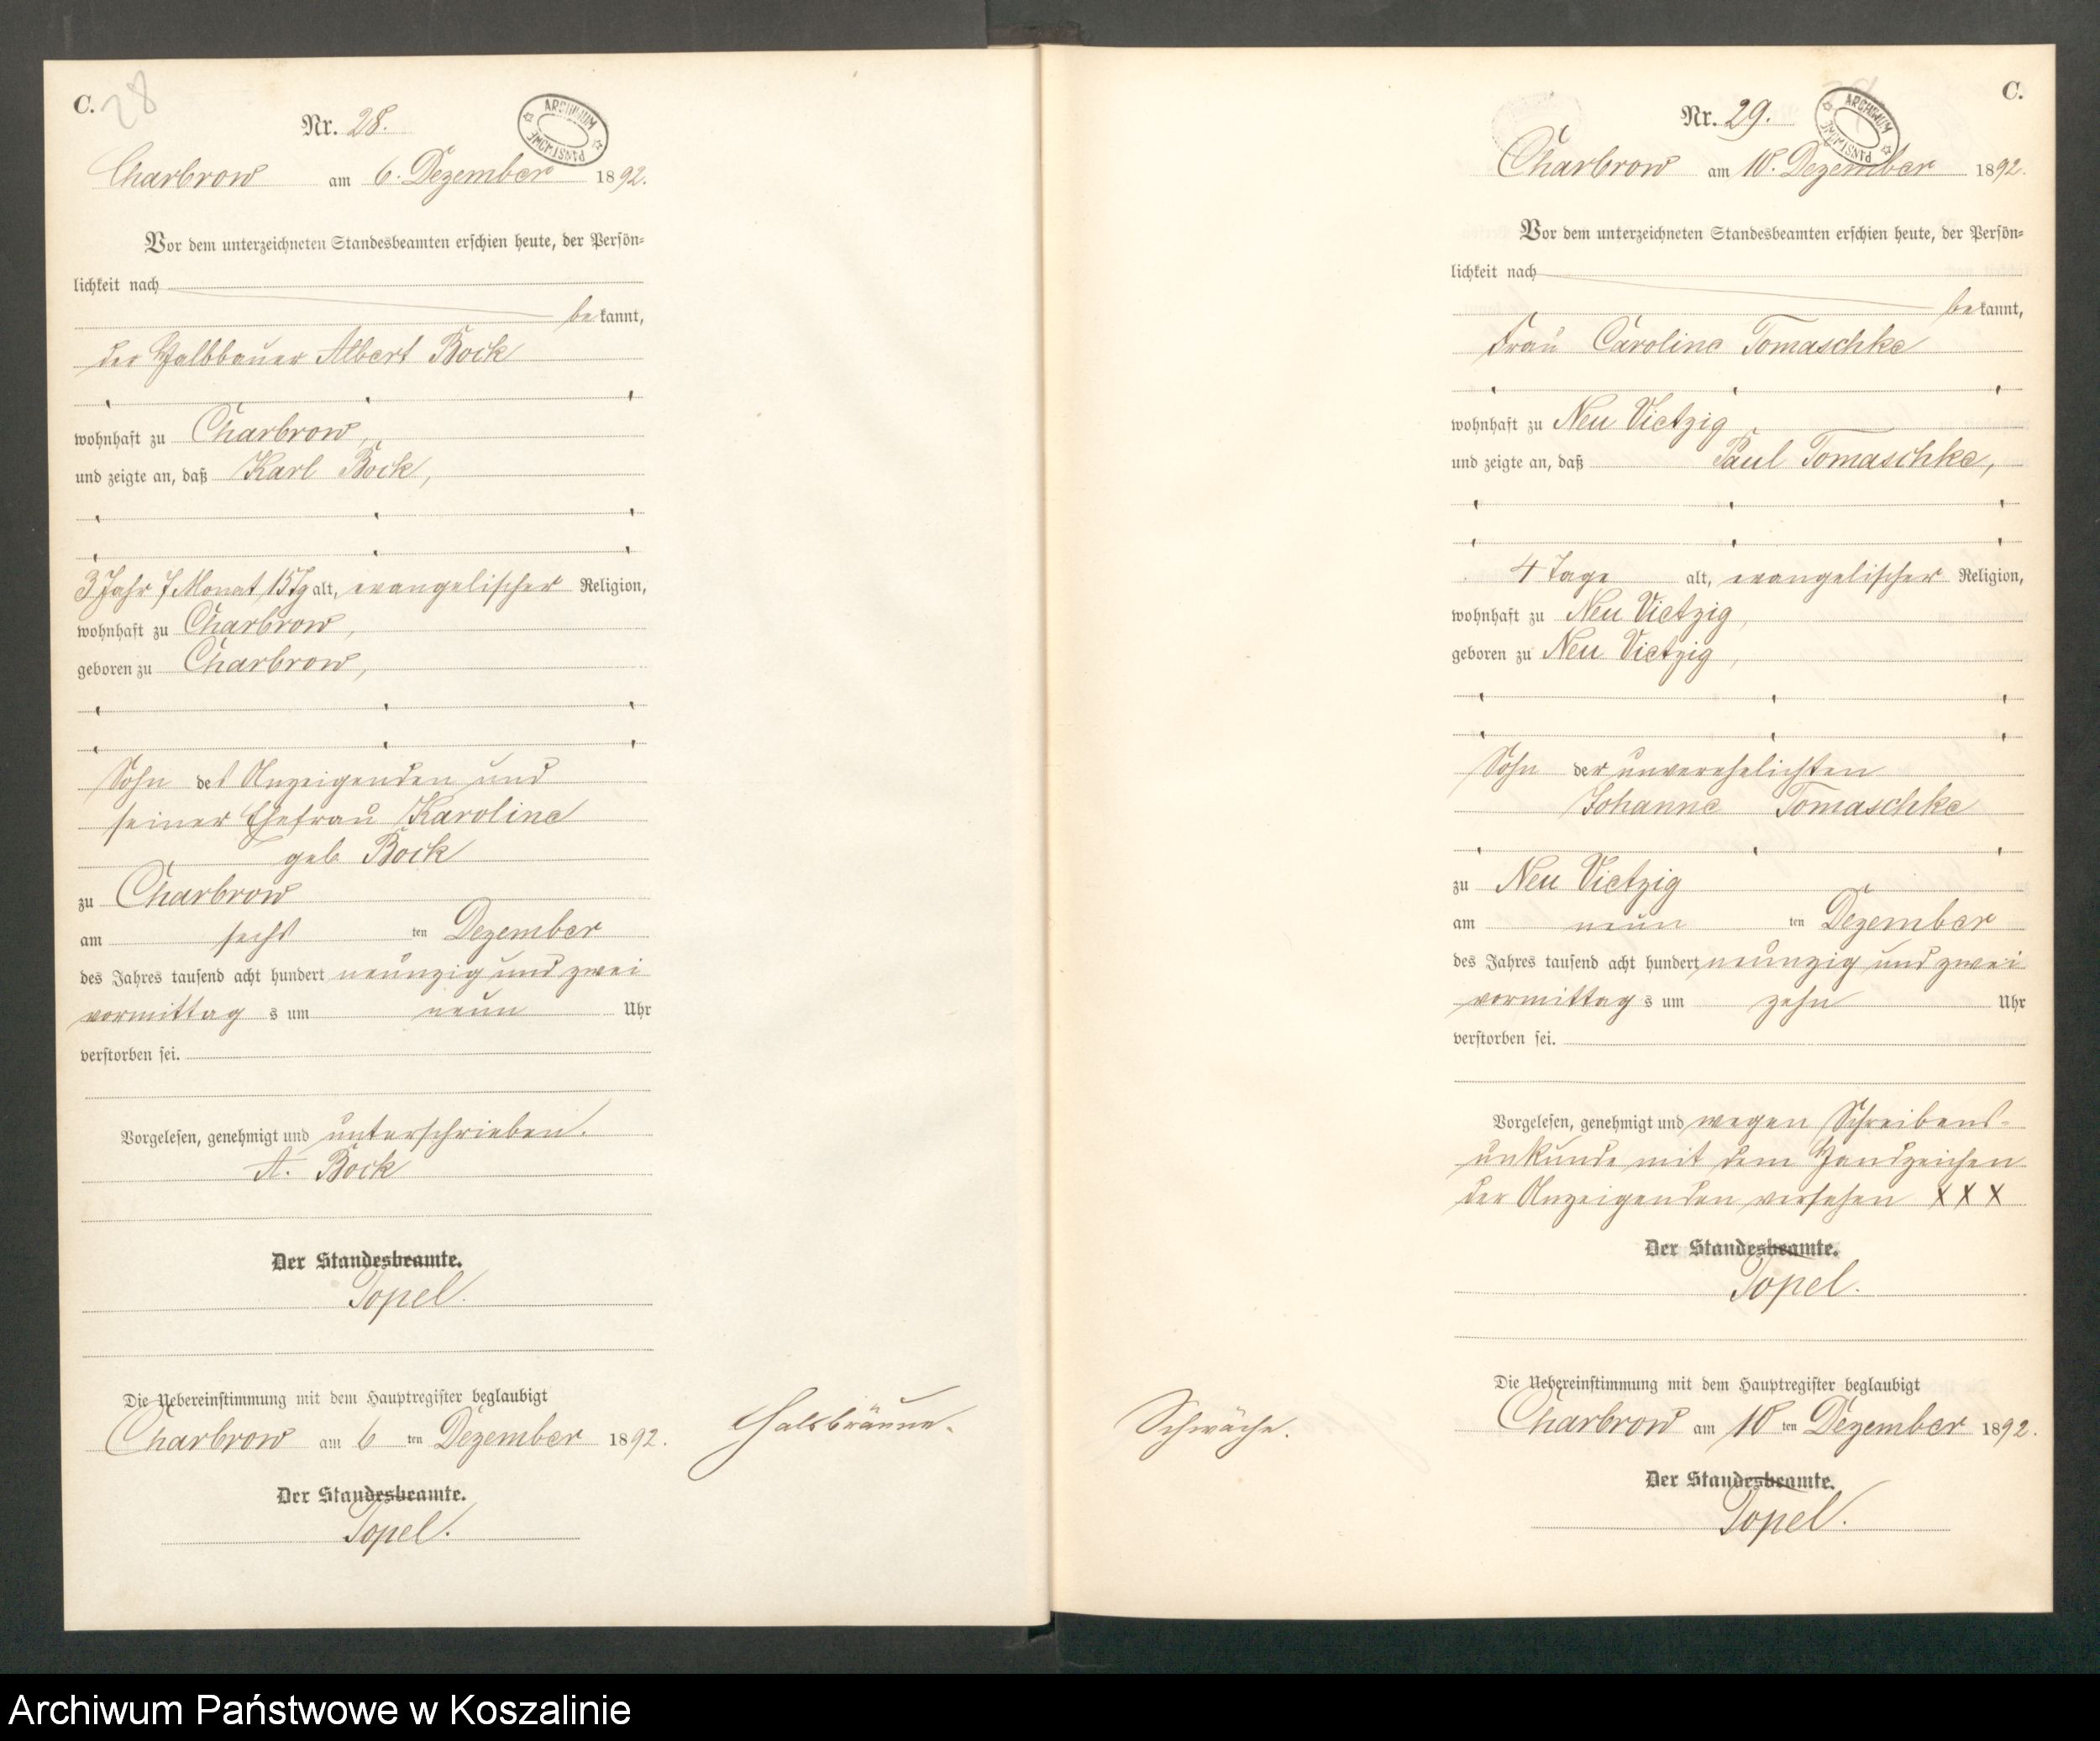 C.
28
Nr. 28.
ARCHIWUM PAŃSTWOWE
Charbrow am 6. Dezember 1892.
Vor dem unterzeichneten Standesbeamten erschien heute, der Persön-
lichkeit nach
bekannt,
der Halbbauer Albert Bock
wohnhaft zu Charbrow,
und zeigte an, daß Karl Bock,
3 Jahr 7 Monat 15 Tg alt, evangelischer Religion,
wohnhaft zu Charbrow,
geboren zu Charbrow,
Sohn des Anzeigenden und
seiner Ehefrau Karoline
geb Bock
zu Charbrow
am sechs ten Dezember
des Jahres tausend acht hundert neunzig und zwei
vormittag s um neun Uhr
verstorben sei.
Vorgelesen, genehmigt und unterschrieben.
A. Bock
Der Standesbeamte.
Topel.
Die Uebereinstimmung mit dem Hauptregister beglaubigt
Charbrow am 6 ten Dezember 1892.
Der Standesbeamte.
Topel.
Halsbräune.
C.
Nr. 29.
ARCHIWUM PAŃSTWOWE
Charbrow am 10. Dezember 1892.
Vor dem unterzeichneten Standesbeamten erschien heute, der Persön-
lichkeit nach
bekannt,
Frau Caroline Tomaschke
wohnhaft zu Neu Vietzig
und zeigte an, daß Paul Tomaschke,
4 Tage alt, evangelischer Religion,
wohnhaft zu Neu Vietzig,
geboren zu Neu Vietzig,
Sohn der unverehelichten
Johanne Tomaschke
zu Neu Vietzig
am neun ten Dezember
des Jahres tausend acht hundert neunzig und zwei
vormittag s um zehn Uhr
verstorben sei.
Vorgelesen, genehmigt und wegen Schreibens-
unkunde mit dem Handzeichen
der Anzeigenden versehen XXX
Der Standesbeamte.
Topel.
Die Uebereinstimmung mit dem Hauptregister beglaubigt
Charbrow am 10 ten Dezember 1892.
Der Standesbeamte.
Topel.
Schwäche.
Archiwum Państwowe w Koszalinie